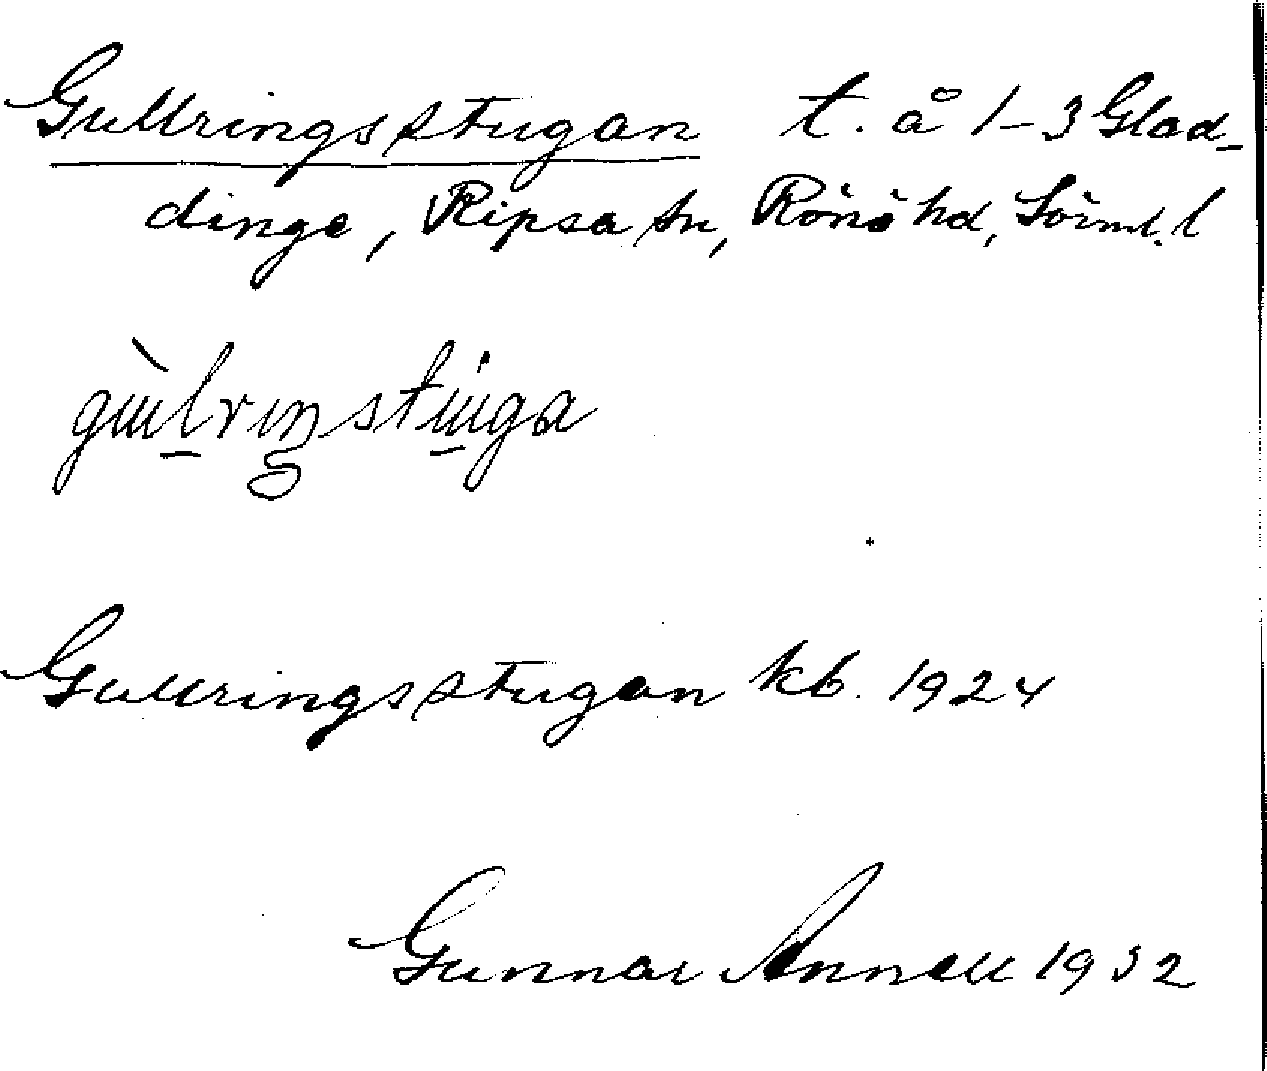 Gullringsstugan t. å 1-3 Glad-
dinge, Ripsa sn, Rönö hd, Sörml. l
gùlriŋstùga
Gullringsstugan kb. 1924
Gunnar Annell 1932